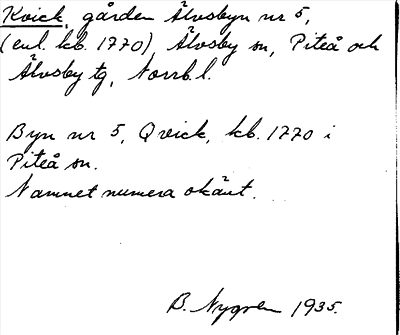 Kvick, gården Älvsbyn nr 5,
(enl. kb. 1770), Älvsby sn, Piteå och
Älvsby tg, Norrb. l.
Byn nr 5, Qvick, kb. 1770 i
Piteå sn.
Namnet numera okänt.
B. Nygren 1935.